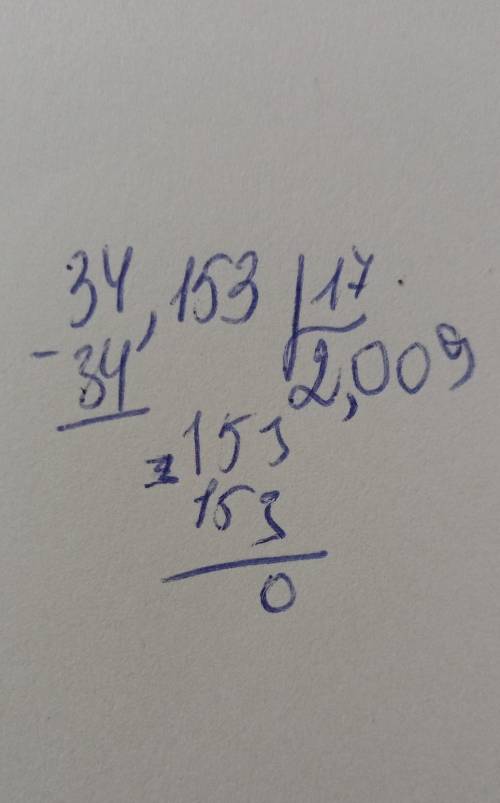 34,153 | 17
- 34 2,009
- 153
153
0